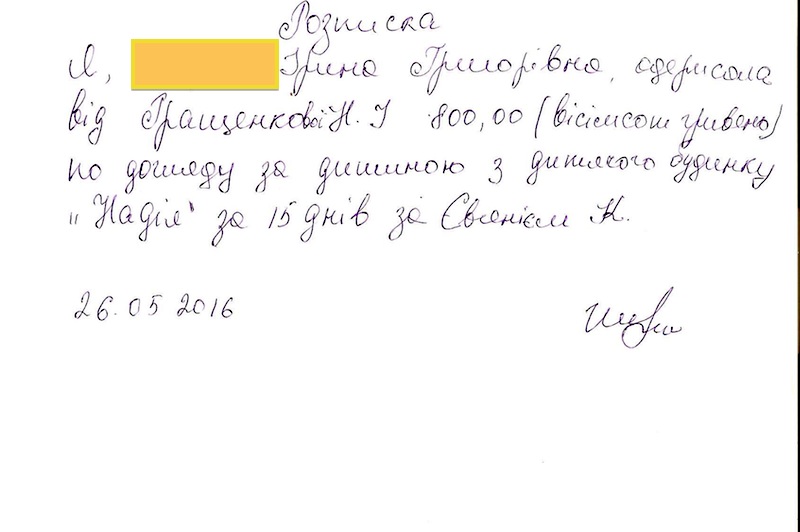 Розписка
Я, Ірина Григорівна, одержала
від Гращенкової Н. І 800,00 (вісімсот гривень)
по догляду за дитиною з дитячого будинку
"Надія" за 15 днів за Євгенієм К.
26.05 2016